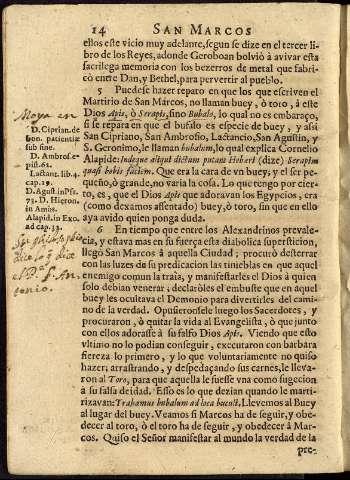 14 SAN MARCOS
ellos este vicio muy adelante, segun se dize en el tercer li-
bro de los Reyes, adonde Geroboan bolviò à avivar esta
sacrilega memoria con los bezerros de metal que fabri-
cò entre Dan, y Bethel, para pervertir al pueblo.
5 Puedese hazer reparo en que los que escriven el
Martirio de San Marcos, no llaman buey, ò toro, à este
Dios Apis, ò Serapis, sino Bubalo, lo qual no es embaraço,
si se repara en que el bufalo es especie de buey, y assi
San Cypriano, San Ambrosio, Lactancio, San Agustin, y
S. Geronimo, le llaman bubalum, lo qual explica Cornelio
Alapide: Indeque aliqui dictum putant Hebræi (dize) Serapim
quasi bobis faciem. Que era la cara de vn buey, y el ser pe-
queño, ò grande, no varia la cosa. Lo que tengo por cier-
to, es, que el Dios Apis que adoravan los Egypcios, era
(como dexamos assentado) buey, ò toro, sin que en ello
aya avido quien ponga duda.
6 En tiempo que entre los Alexandrinos prevale-
cia, y estava mas en su fuerça esta diabolica supersticion,
llegò San Marcos à aquella Ciudad; procurò desterrar
con las luzes de su predicacion las tinieblas en que aquel
enemigo comun la traia, y manifestarles el Dios à quien
solo debian venerar, declaròles el embuste que en aquel
buey les ocultava el Demonio para divertirles del cami-
no de la verdad. Opusieronsele luego los Sacerdotes, y
procuraron, ò quitar la vida al Evangelista, ò que junto
con ellos adorasse à su falso Dios Apis. Viendo que esto
vltimo no lo podian conseguir, executaron con barbara
fiereza lo primero, y lo que voluntariamente no quiso
hazer; arrastrando, y despedaçando sus carnes, le lleva-
ron al Toro, para que aquella le fuesse vna como sugecion
à su falsa deidad. Esso es lo que dezian quando le marti-
rizavan: Trahamus bubalum ad loca buculi. Llevemos al Buey
al lugar del buey. Veamos si Marcos ha de seguir, y obe-
decer al toro, ò el toro ha de seguir, y obedecer à Mar-
cos. Quiso el Señor manifestar al mundo la verdad de la
pre-
Moya en
D. Ciprian. de
bon. patientiæ
sub fine.
D. Ambros. e-
pist. 61.
Lactanc. lib. 4.
cap. 19.
D. Agust. in Ps.
73. D. Hieron.
in Amis.
Alapid. in Exo.
ad cap. 13.
dize lo q̃ dize
el P. F. An-
tonio.